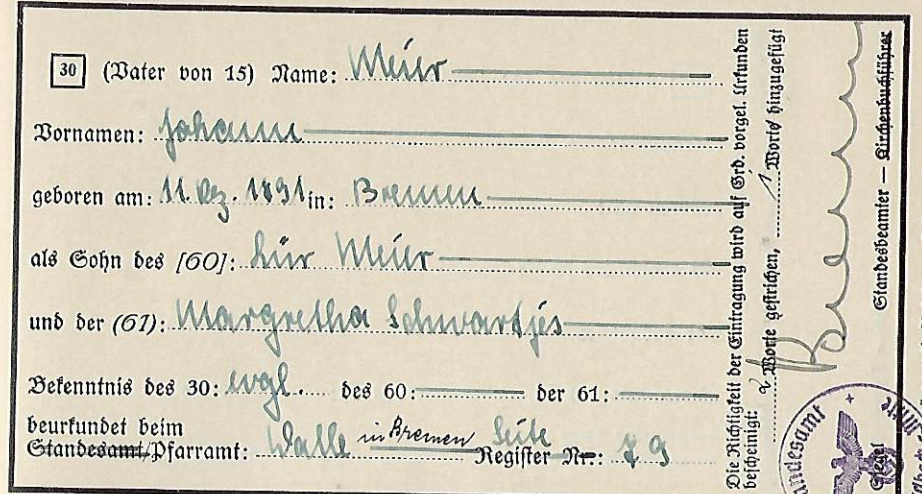 30 (Vater von 15) Name: Meier
Vornamen: Johann
geboren am: 11. Dez. in: Bremen
als Sohn des [60]: Lür Meier
und der (61): Margretha Schwartjes
Bekenntnis des 30: evgl. des 60: der 61:
beurkundet beim
Standesamt/Pfarramt: Walle in Bremen Seite Register Nr.: 79
Die Richtigkeit der Eintragung wird auf Grd. vorgel. Urkunden
bescheinigt: 2 Worte gestrichen, 1 Wort hinzugefügt
Standesbeamter – Kirchenbuchführer
ndesamt
Siegel